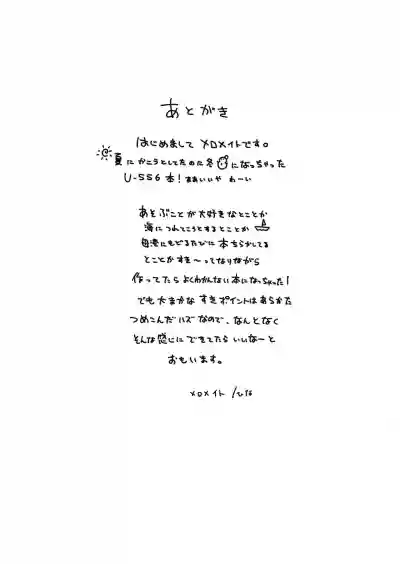 あとがき
はじめまして メロメイトです。
夏にかこうとしてたのに冬になっちゃった
U-556 本! まあいいや わーい
あそぶことが大好きなとことか
海につれてこうとするとことか
母港にもどるたびに 本ちらかしてる
とことかすき〜ってなりながら
作ってたらよくわかんない本になっちゃった!
でも大まかな すきポイントはあらかた
つめこんだハズなので、なんとなく
そんな感じに できてたら いいなーと
おもいます。
メロメイト/ひな